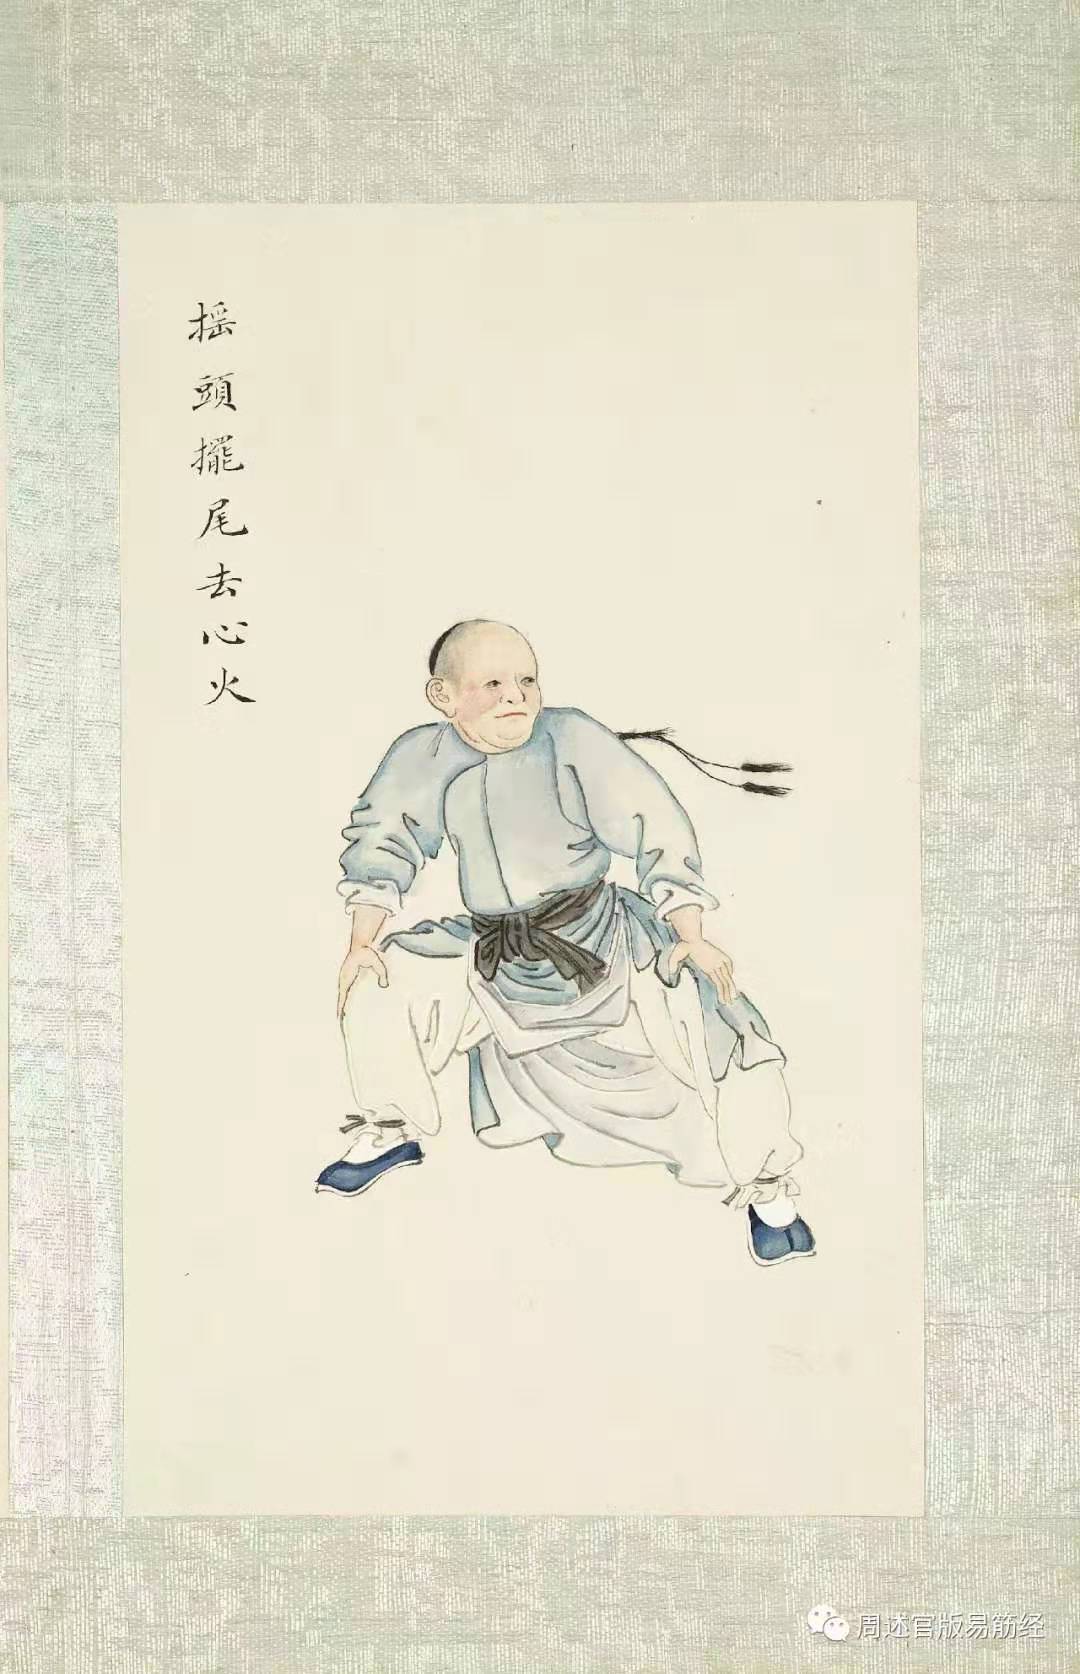 搖頭擺尾去心火
周述官版易筋经